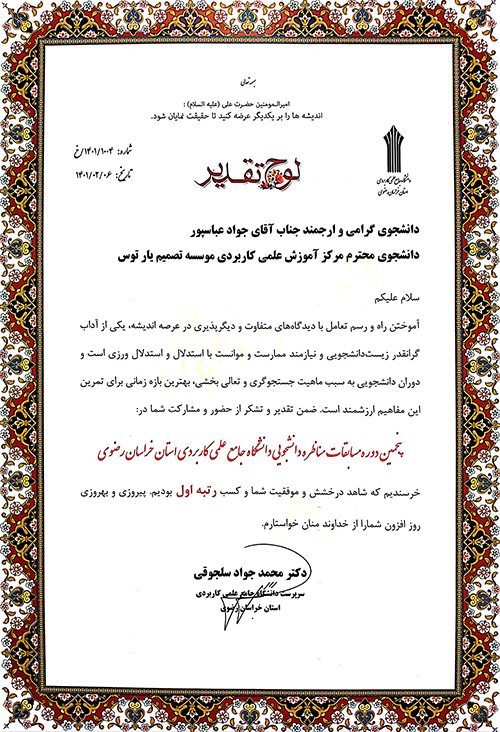 بسمه تعالی
امیرالمومنین حضرت علی (علیه السلام) :
اندیشه ها را بر یکدیگر عرضه کنید تا حقیقت نمایان شود.
شماره: ۱۴۰۱/۱۰۰۴/خ
تاریخ: ۱۴۰۱/۰۲/۰۶
دانشگاه جامع علمی کاربردی
استان خراسان رضوی
لوح تقدیر
دانشجوی گرامی و ارجمند جناب آقای جواد عباسپور
دانشجوی محترم مرکز آموزش علمی کاربردی موسسه تصمیم یار توس
سلام علیکم
آموختن راه و رسم تعامل با دیدگاه‌های متفاوت و دیگرپذیری در عرصه اندیشه، یکی از آداب
گرانقدر زیست‌دانشجویی و نیازمند ممارست و موانست با استدلال و استدلال ورزی است و
دوران دانشجویی به سبب ماهیت جستجوگری و تعالی بخشی، بهترین بازه زمانی برای تمرین
این مفاهیم ارزشمند است. ضمن تقدیر و تشکر از حضور و مشارکت شما در:
پنجمین دوره مسابقات مناظره دانشجویی دانشگاه جامع علمی کاربردی استان خراسان رضوی
خرسندیم که شاهد درخشش و موفقیت شما و کسب رتبه اول بودیم. پیروزی و بهروزی
روز افزون شمارا از خداوند منان خواستارم.
دکتر محمد جواد سلجوقی
سرپرست دانشگاه جامع علمی کاربردی
استان خراسان رضوی